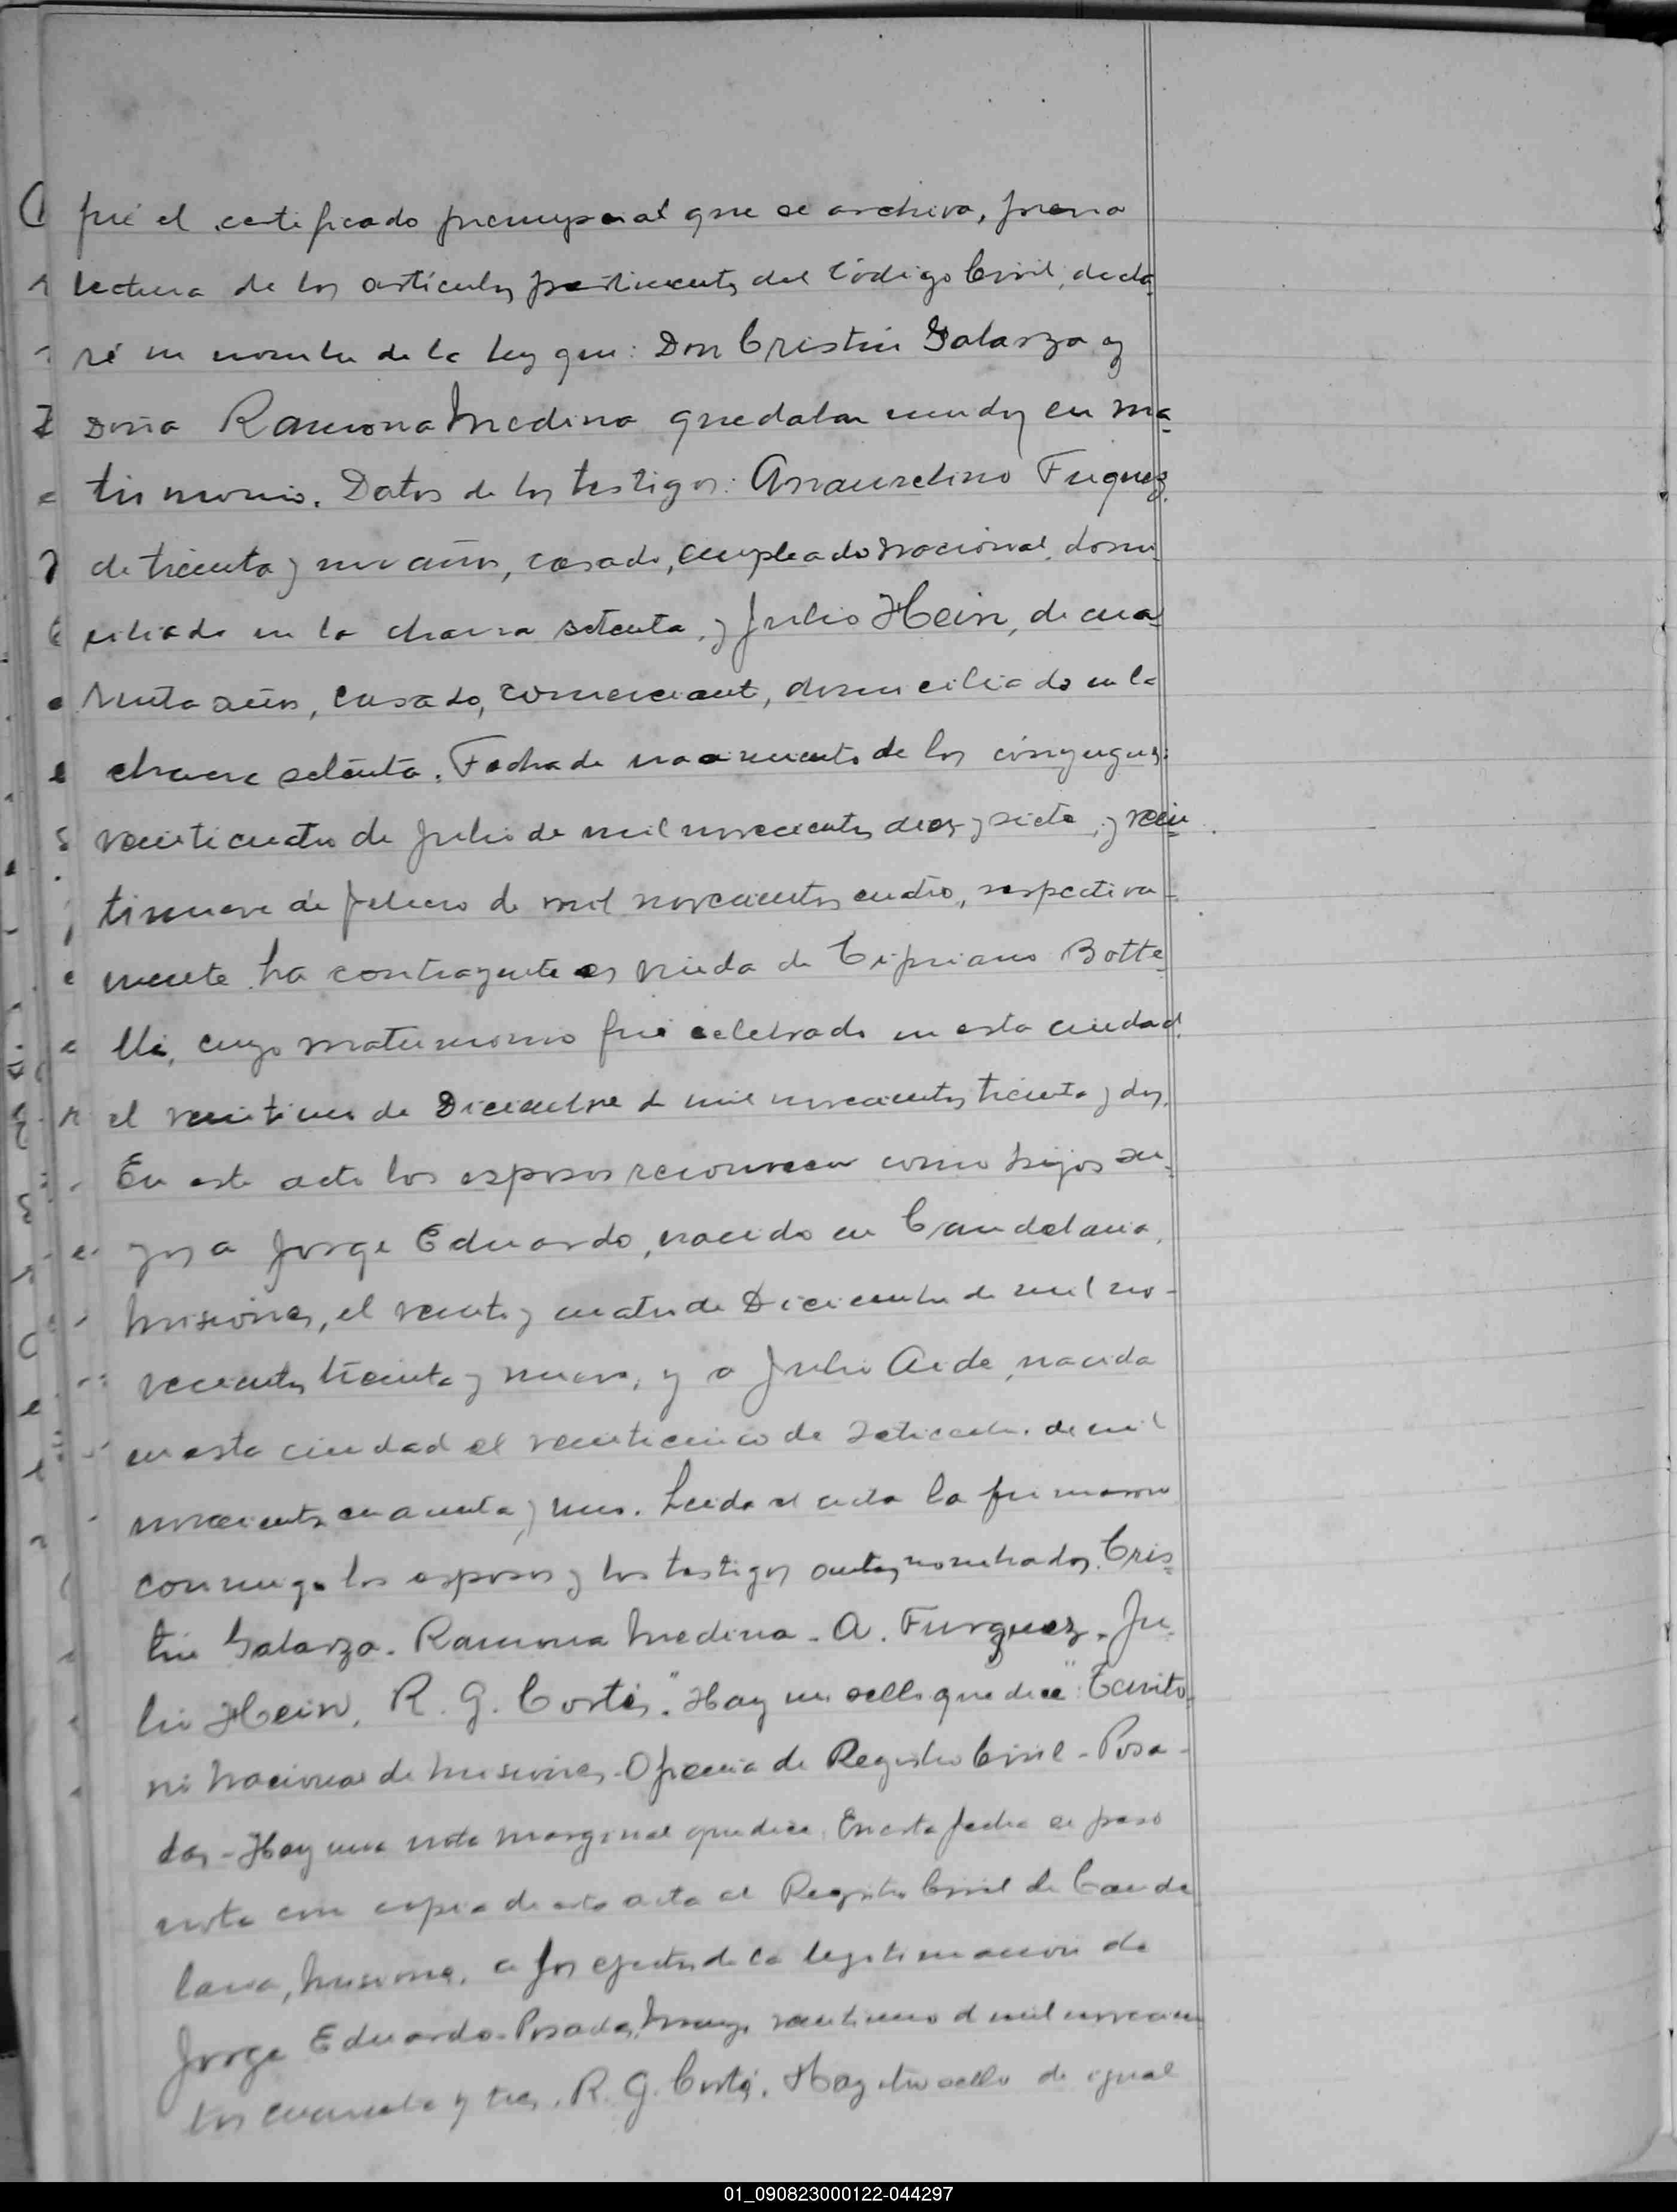 fué el certificado prenupcial que se archiva, previa
lectura de los artículos pertinentes del Código Civil, decla-
ré en nombre de la ley que: Don Cristin Galarza y
Doña Ramona Medina quedaban unidos en ma-
trimonio. Datos de los testigos: Fuquez
de treinta y un años, casado, empleado nacional, domi-
ciliado en la chacra setenta, y Julio Hein, de cua-
renta años, casado, comerciante, domiciliado en la
chacra setenta. Fecha de nacimiento de los cónyuges:
veinticuatro de Julio de mil novecientos diez y siete, y vein-
tinueve de febrero de mil novecientos cuatro, respectiva-
mente. La contrayente es viuda de Cipriano Botte-
lli, cuyo matrimonio fué celebrado en esta ciudad
el veintiuno de Diciembre de mil novecientos treinta y dos.
En este acto los esposos reconocen como hijos su-
yos a Jorge Eduardo, nacido en Candelaria,
Misiones, el veinte y cuatro de Diciembre de mil no-
vecientos treinta y nueve, y a Julia Aide, nacida
en esta ciudad el veinticinco de Setiembre de mil
novecientos cuarenta y uno. Leida el acta la firmaron
conmigo los esposos y los testigos antes nombrados. Cris-
tin Galarza. Ramona Medina - A. Furquez - Ju-
lio Hein. R. G. Cortés." Hay un sello que dice: "Territo-
rio Nacional de Misiones - Oficina de Registro Civil - Posa-
das - Hay una nota marginal que dice: En esta fecha se pasó
nota con copia de esta acta al Registro Civil de Cande-
laria, Misiones, a los efectos de la legitimación de
Jorge Eduardo - Posadas, Mayo veintiuno de mil novecien-
tos cuarenta y tres. R. G. Cortés. Hay otro sello de igual
01_090823000122-044297